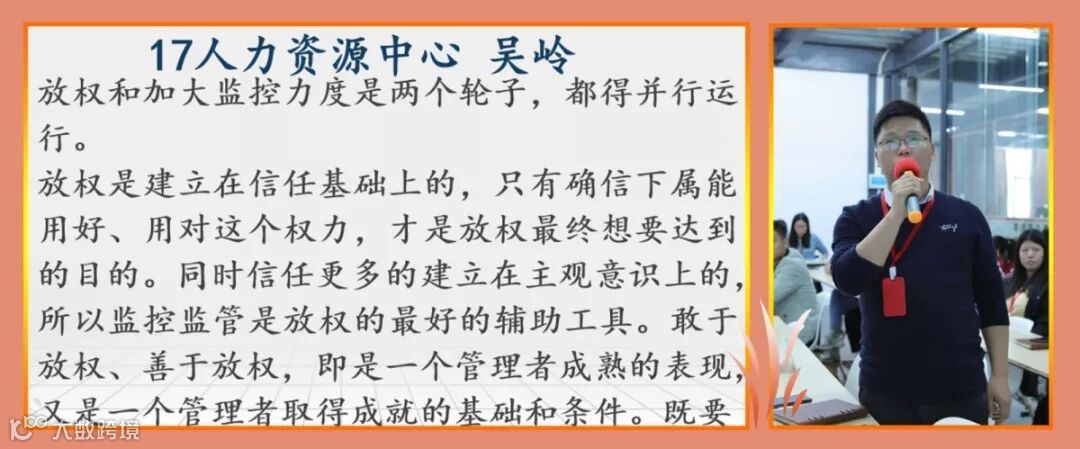 17人力资源中心 吴岭
放权和加大监控力度是两个轮子，都得并行运
行。
放权是建立在信任基础上的，只有确信下属能
用好、用对这个权力，才是放权最终想要达到
的目的。同时信任更多的建立在主观意识上的，
所以监控监管是放权的最好的辅助工具。敢于
放权、善于放权，即是一个管理者成熟的表现，
又是一个管理者取得成就的基础和条件。既要
大数跨境